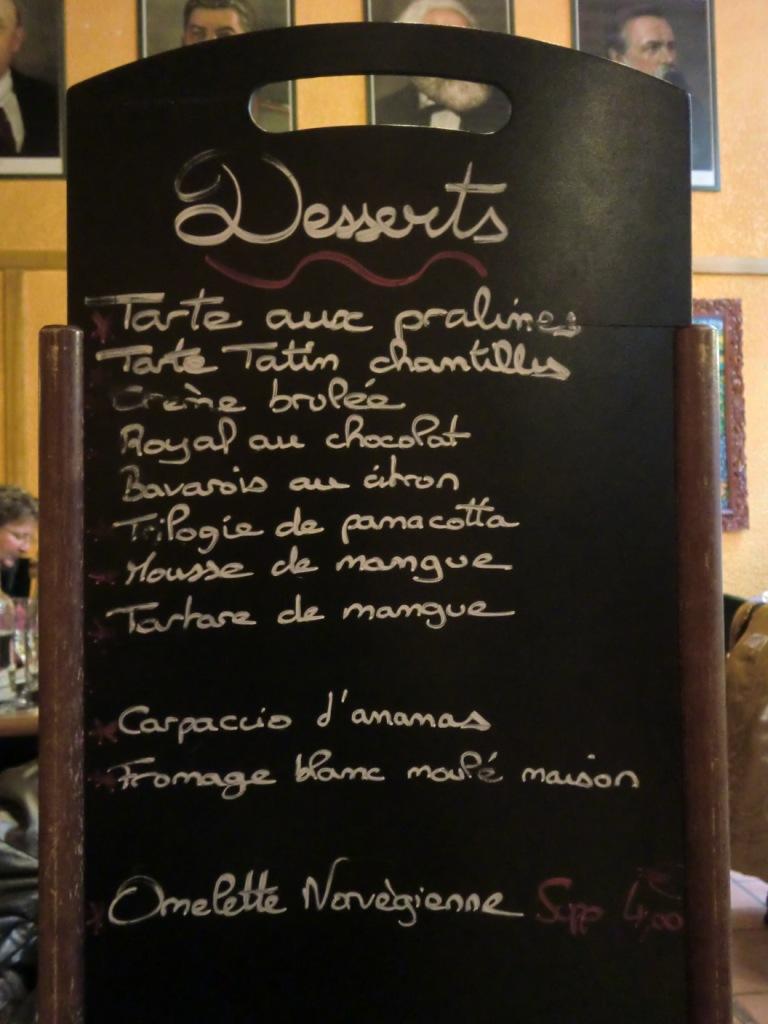 Desserts
Tarte aux pralines
Tarte Tatin chantilly
Crème brulée
Royal au chocolat
Bavarois au citron
Trilogie de panacotta
Mousse de mangue
Tartare de mangue
Carpaccio d'ananas
Fromage blanc moulé maison
Omelette Norvègienne Supp 4,00€